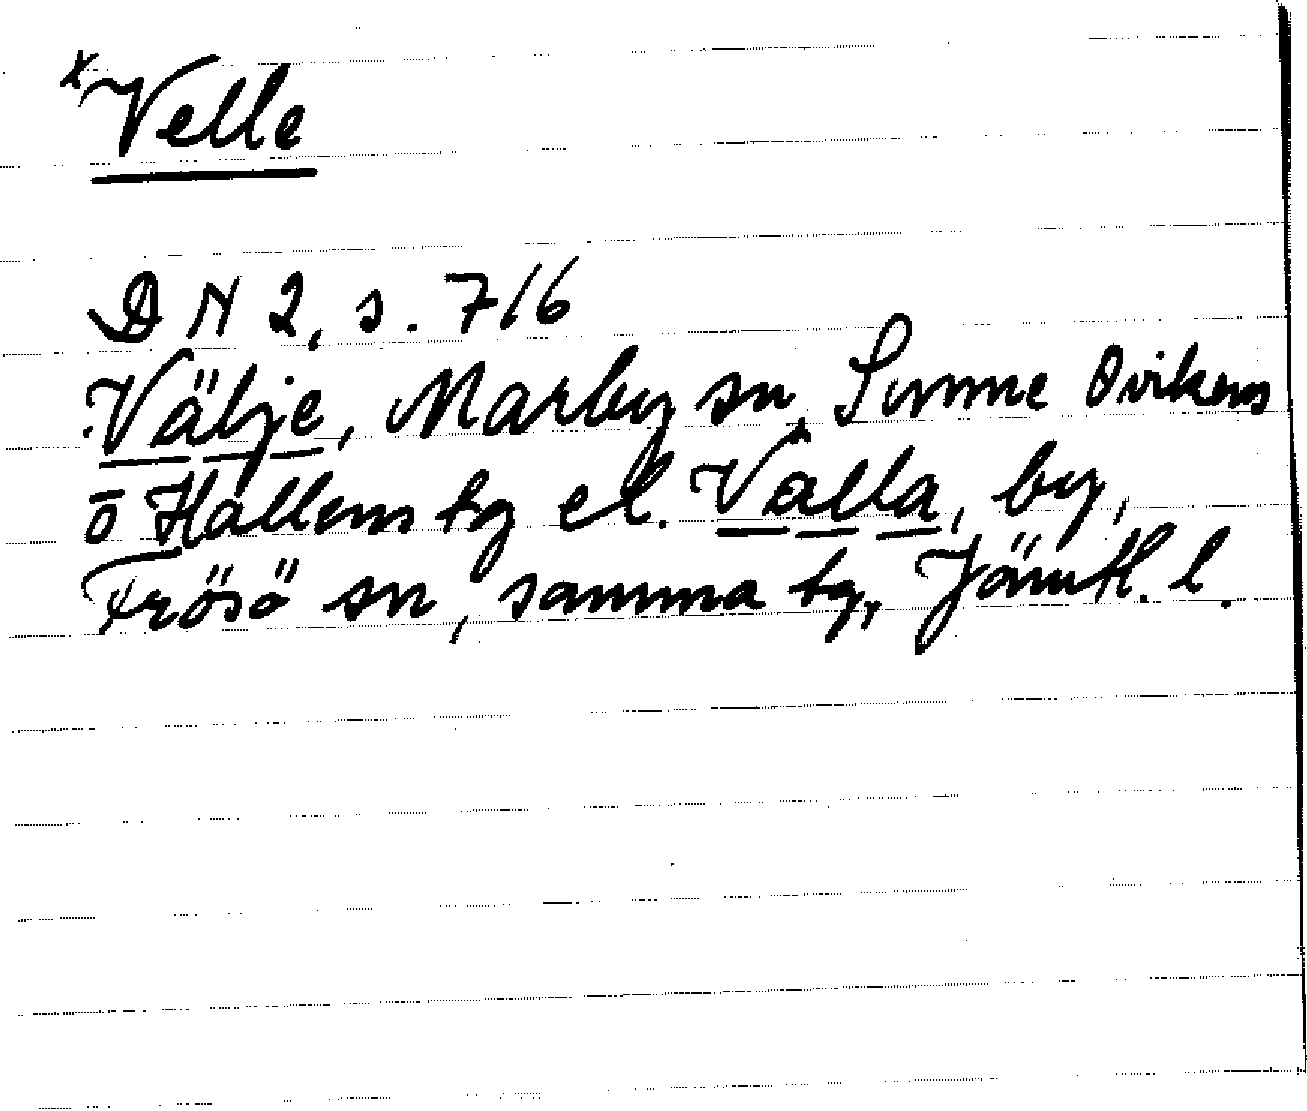 x Velle
DN 2, s. 716
Välje, Marby sn, Sunne Ovikens
o Hallens tg el. Valla, by,
Frösö sn, samma tg, Jämtl. l.